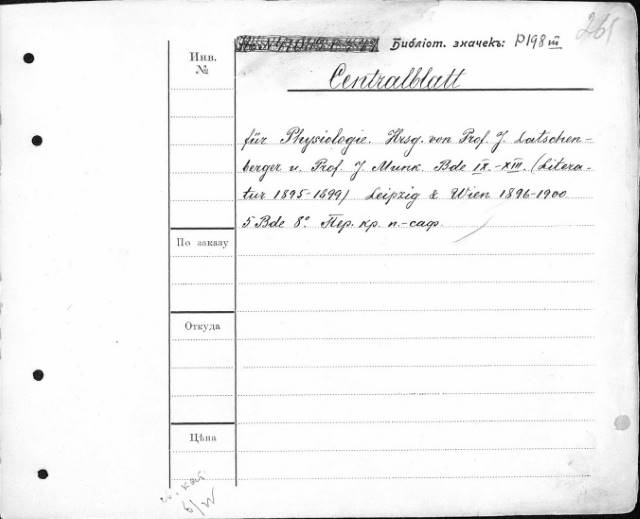 Библіот. значекъ: P198 III
265
Инв. №
Centralblatt
für Physiologie. Hrsg. von Prof. J. Latschen-
berger u. Prof. J. Munk. Bde IX.-XIII. (Litera-
tur 1895-1899) Leipzig & Wien 1896-1900
5 Bde 8°. Пер. кр. п.-саф.
По заказу
Откуда
Цѣна